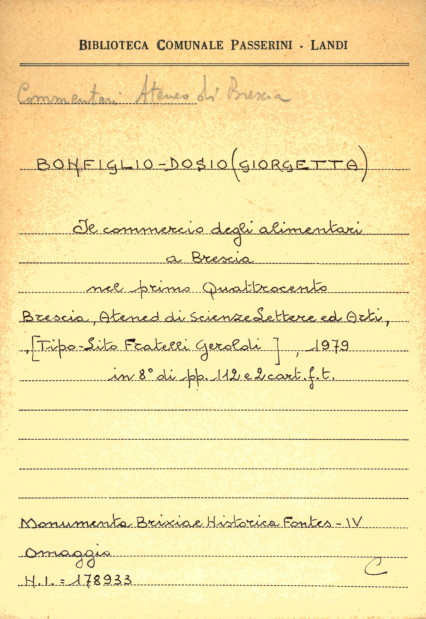 BIBLIOTECA COMUNALE PASSERINI - LANDI
Commentari Ateneo di Brescia
BONFIGLIO-DOSIO (GIORGETTA)
Il commercio degli alimentari
a Brescia
nel primo Quattrocento
Brescia, Ateneo di Scienze Lettere ed Arti,
,[Tipo-Lito Fratelli Geroldi ] , 1979
in 8° di pp. 112 e 2 cart. f. t.
Monumenta Brixiae Historica Fontes - IV
Omaggio
C
N.I. = 178933